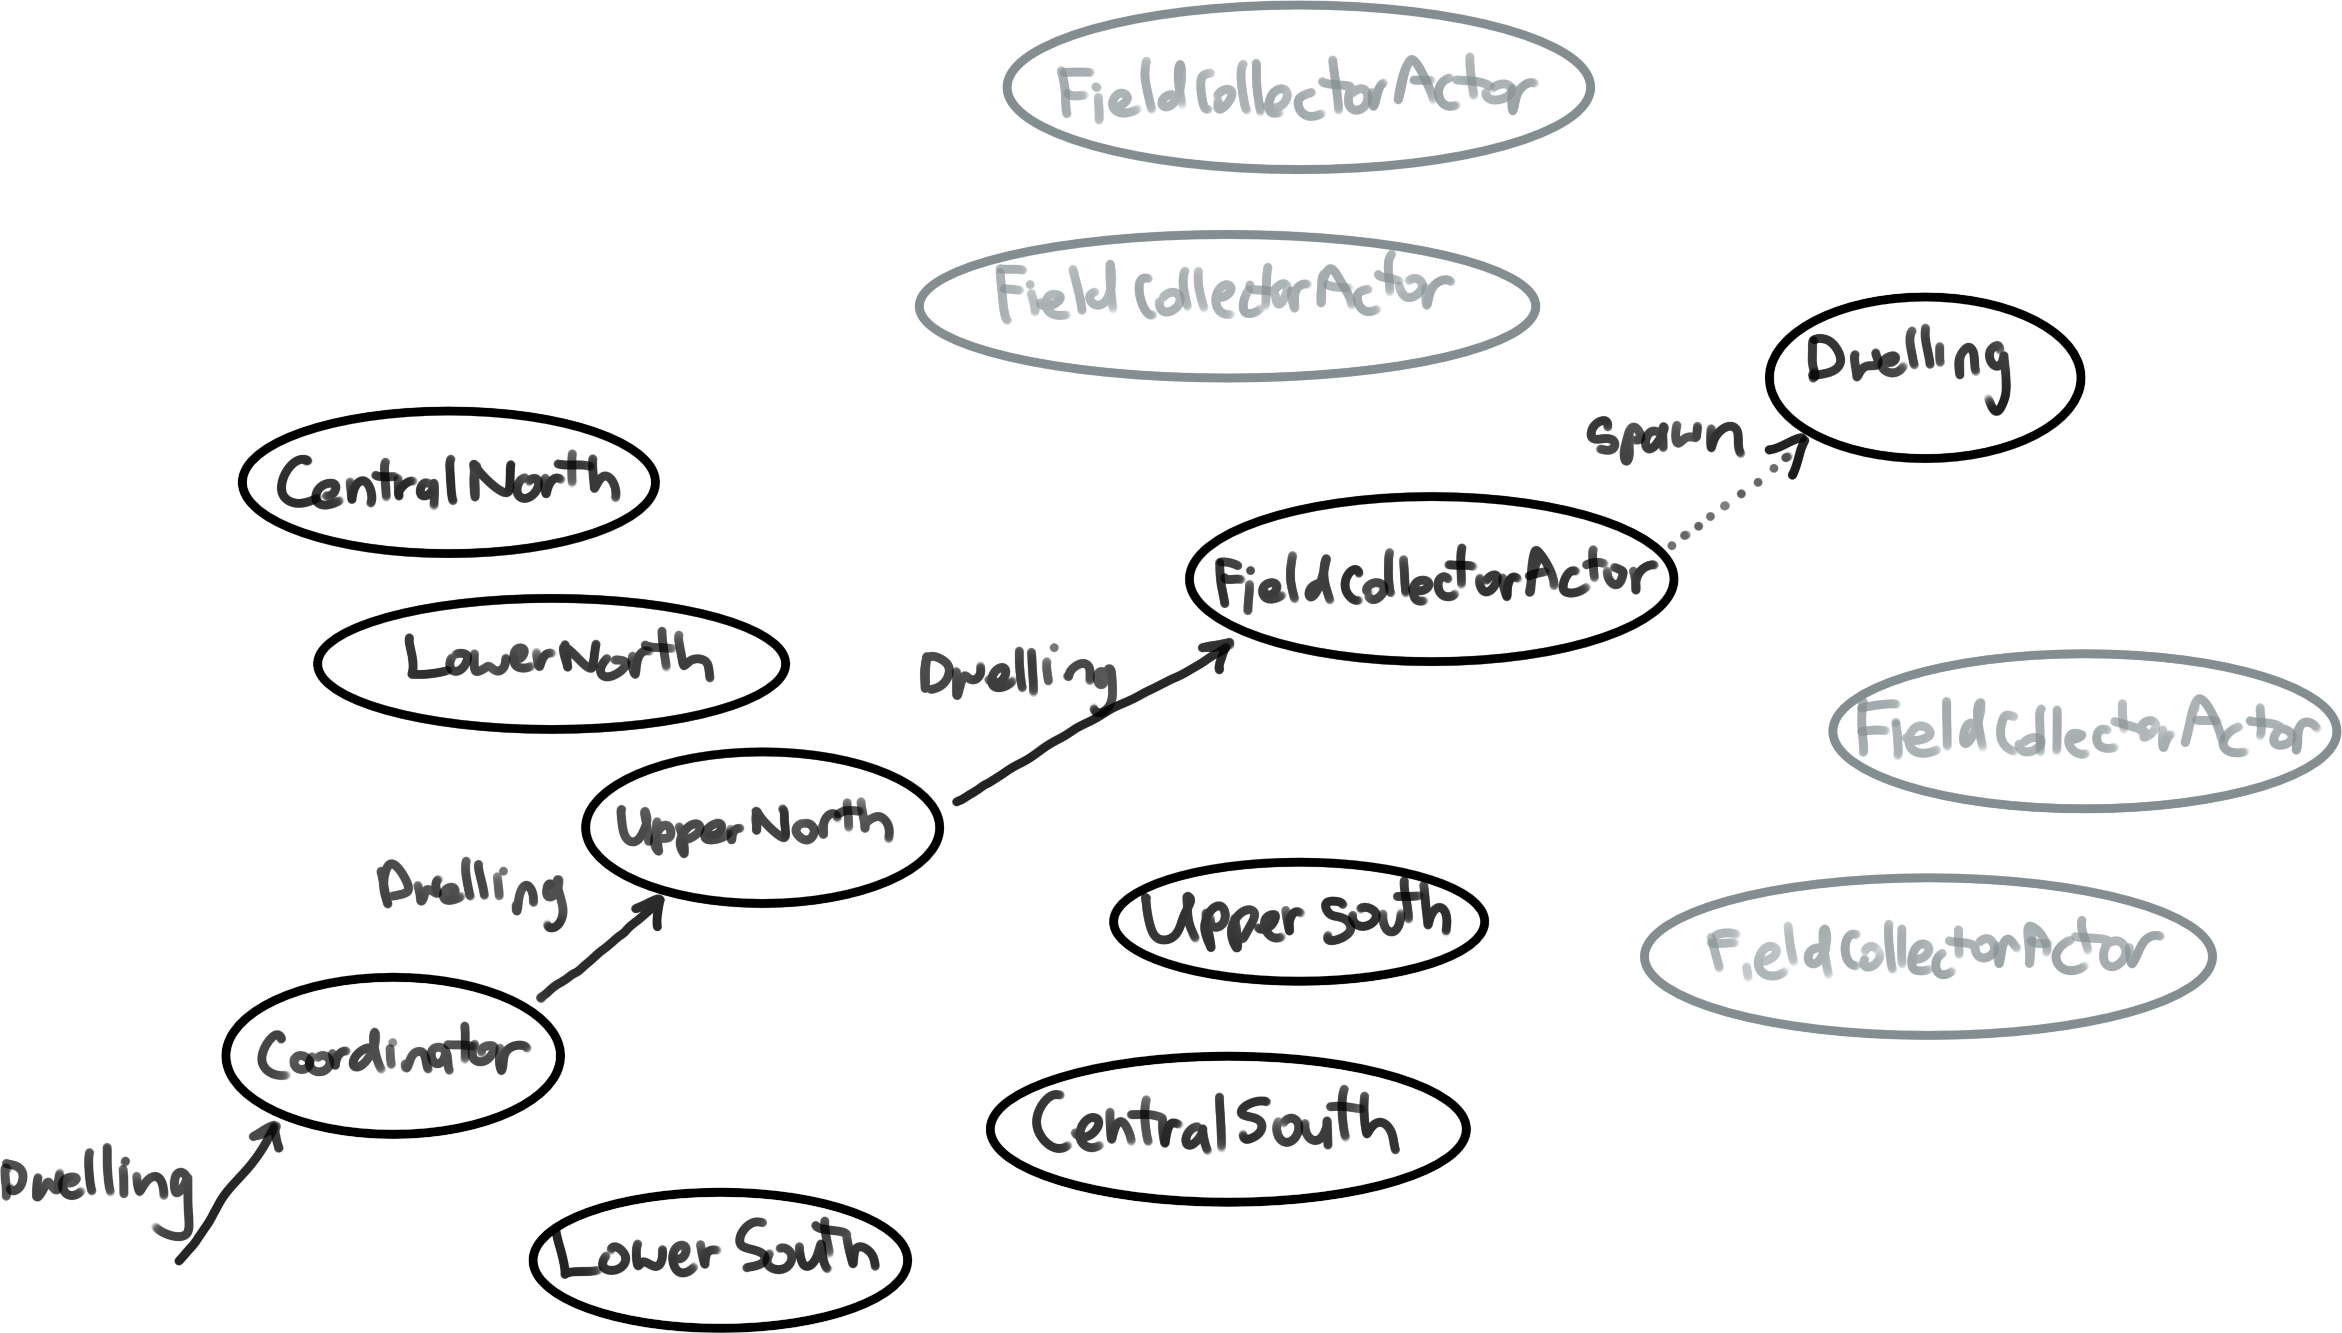 FieldCollectorActor
FieldCollectorActor
Dwelling
Spawn
CentralNorth
FieldCollectorActor
LowerNorth
Dwelling
FieldCollectorActor
UpperNorth
Dwelling
Upper South
FieldCollectorActor
Coordinator
CentralSouth
Dwelling
Lower South